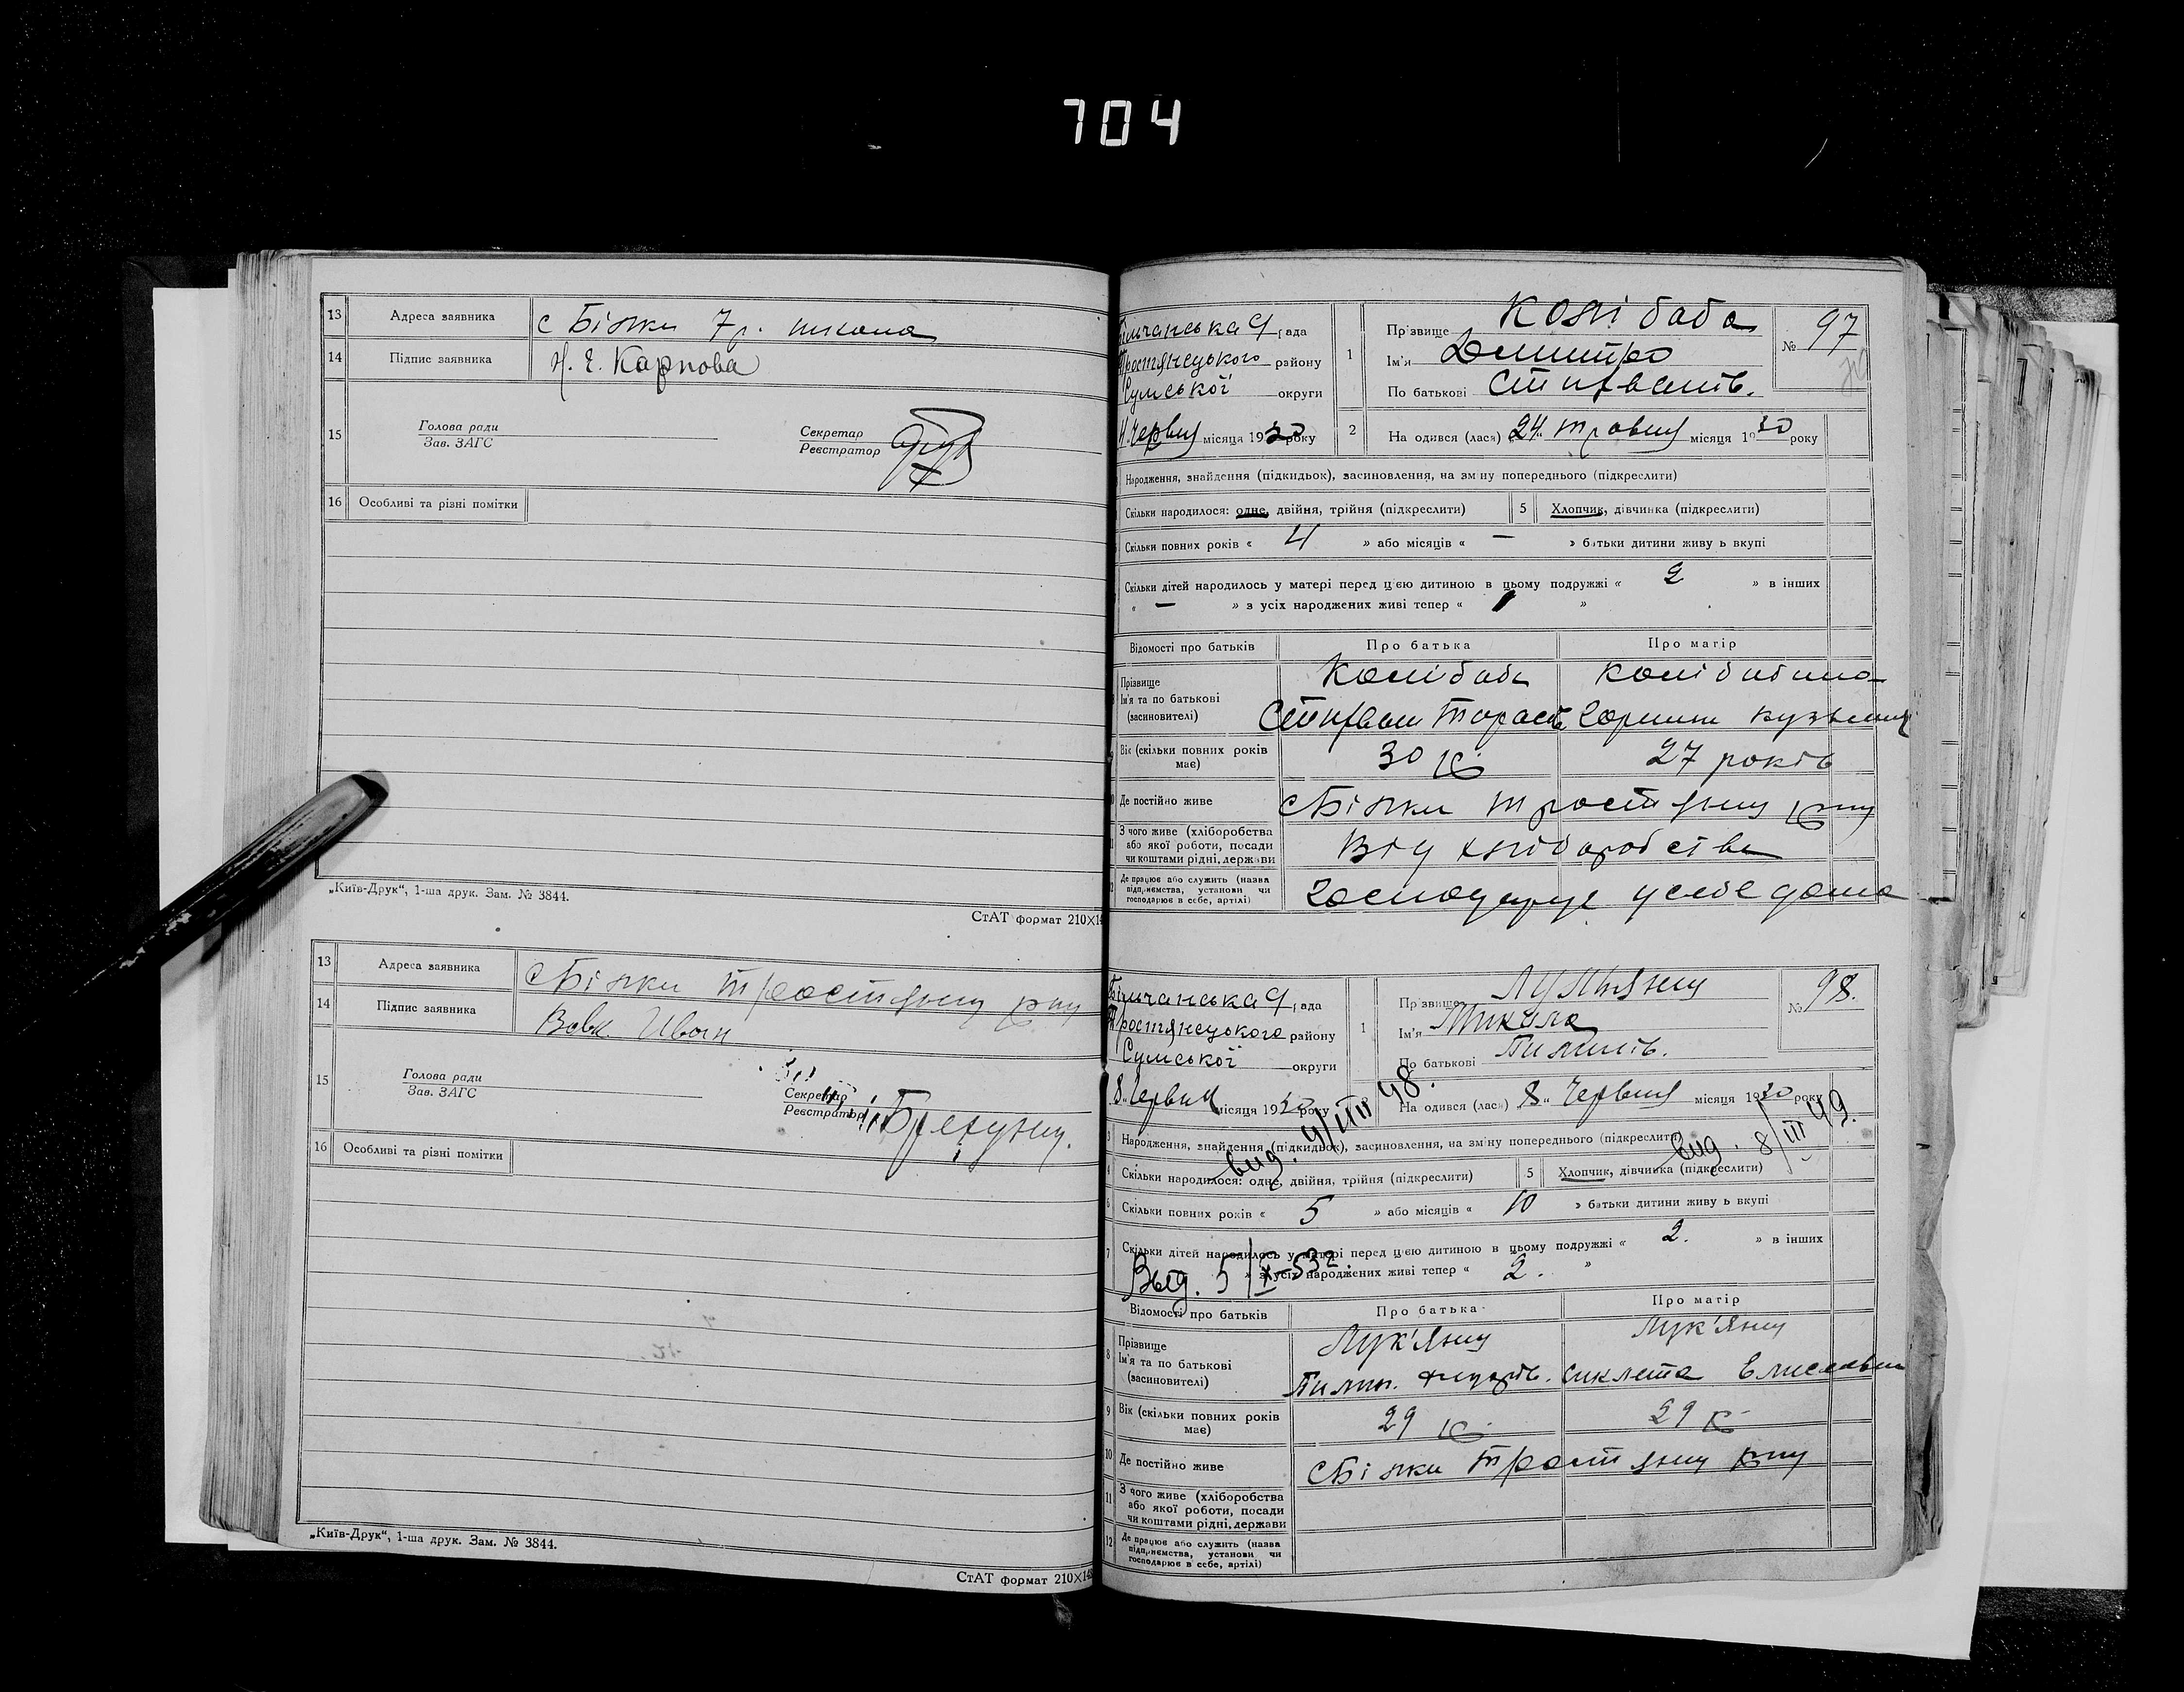 704
13 Адреса заявника с Білки 7р. школа
14 Підпис заявника Н. Е. Карпова
15 Голова ради
Зав. ЗАГС
Секретар
Реєстратор
16 Особливі та різні помітки
„Київ-Друк“, 1-ша друк. Зам. № 3844.
СтАТ формат 210×14
13 Адреса заявника с Білки Тростянец рну
14 Підпис заявника Вовк Иван
15 Голова ради
Зав. ЗАГС
Секретар
Реєстратор
16 Особливі та різні помітки
„Київ-Друк“, 1-ша друк. Зам. № 3844.
СтАТ формат 210×148
Більчанська рада
Тростянецького району
Сумської округи
4. Червня місяця 1930 року
1 Прізвище Колібаба
Ім'я Дмитро
По батькові Степанов.
№ 97
2 На одився (лася) „24“ травня місяця 1930 року
Народження, знайдення (підкидьок), засиновлення, на зміну попереднього (підкреслити)
Скільки народилося: одне, двійня, трійня (підкреслити) 5 Хлопчик, дівчинка (підкреслити)
Скільки повних років « 4 » або місяців « – » батьки дитини живуть вкупі
Скільки дітей народилось у матері перед цією дитиною в цьому подружжі « 2 » в інших
« – » з усіх народжених живі тепер « 1 »
Відомості про батьків Про батька Про матір
Прізвище
Ім'я та по батькові
(засиновителі)
Колібаба
Колібабина
Вік (скільки повних років має) 30 27 років
Де постійно живе с Білки Тростянец рну
З чого живе (хліборобства або якої роботи, посади чи коштами рідні, держави Від хліборобства
Де працює або служить (назва підприємства, установи чи господарює в себе, артілі) Господарує у себе дома
Більчанська рада
Тростянецького району
Сумської округи
8. Червня місяця 1930 року
1 Прізвище
Ім'я Микола
По батькові
№ 98.
На одився (лася) „8“ Червня місяця 1930 року
вид. 4/VIII 48.
вид. 8/III 49.
3 Народження, знайдення (підкидьок), засиновлення, на зміну попереднього (підкреслити)
4 Скільки народилося: одне, двійня, трійня (підкреслити) 5 Хлопчик, дівчинка (підкреслити)
6 Скільки повних років « 5 » або місяців « 10 » батьки дитини живуть вкупі
7 Скільки дітей народилось у матері перед цією дитиною в цьому подружжі « 2. » в інших
» з усіх народжених живі тепер « 2. »
Выд. 5/X-53г.
Відомості про батьків Про батька Про матір
8 Прізвище
Ім'я та по батькові
(засиновителі)
Лук'янец
Лук'янец
9 Вік (скільки повних років має) 29 29
10 Де постійно живе с Білки Тростянец рну
11 З чого живе (хліборобства або якої роботи, посади чи коштами рідні, держави
12 Де працює або служить (назва підприємства, установи чи господарює в себе, артілі)